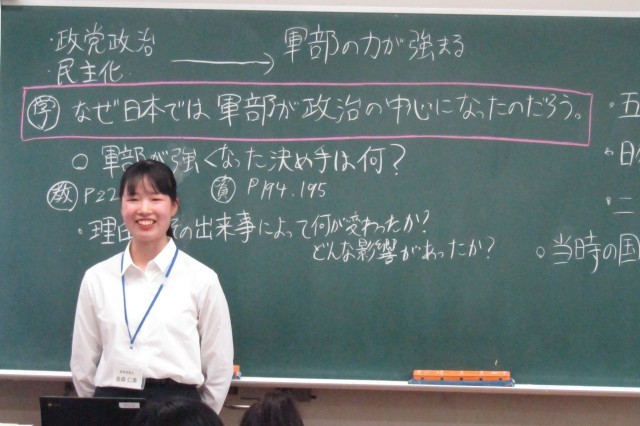 ・政党政治
・民主化 → 軍部の力が強まる
学 なぜ日本では軍部が政治の中心になったのだろう。
○ 軍部が強くなった決め手は何?
教 P22 資 P194.195
・理由 の出来事によって何が変わったか?
どんな影響があったか?
・五
・日
・二
○当時の国